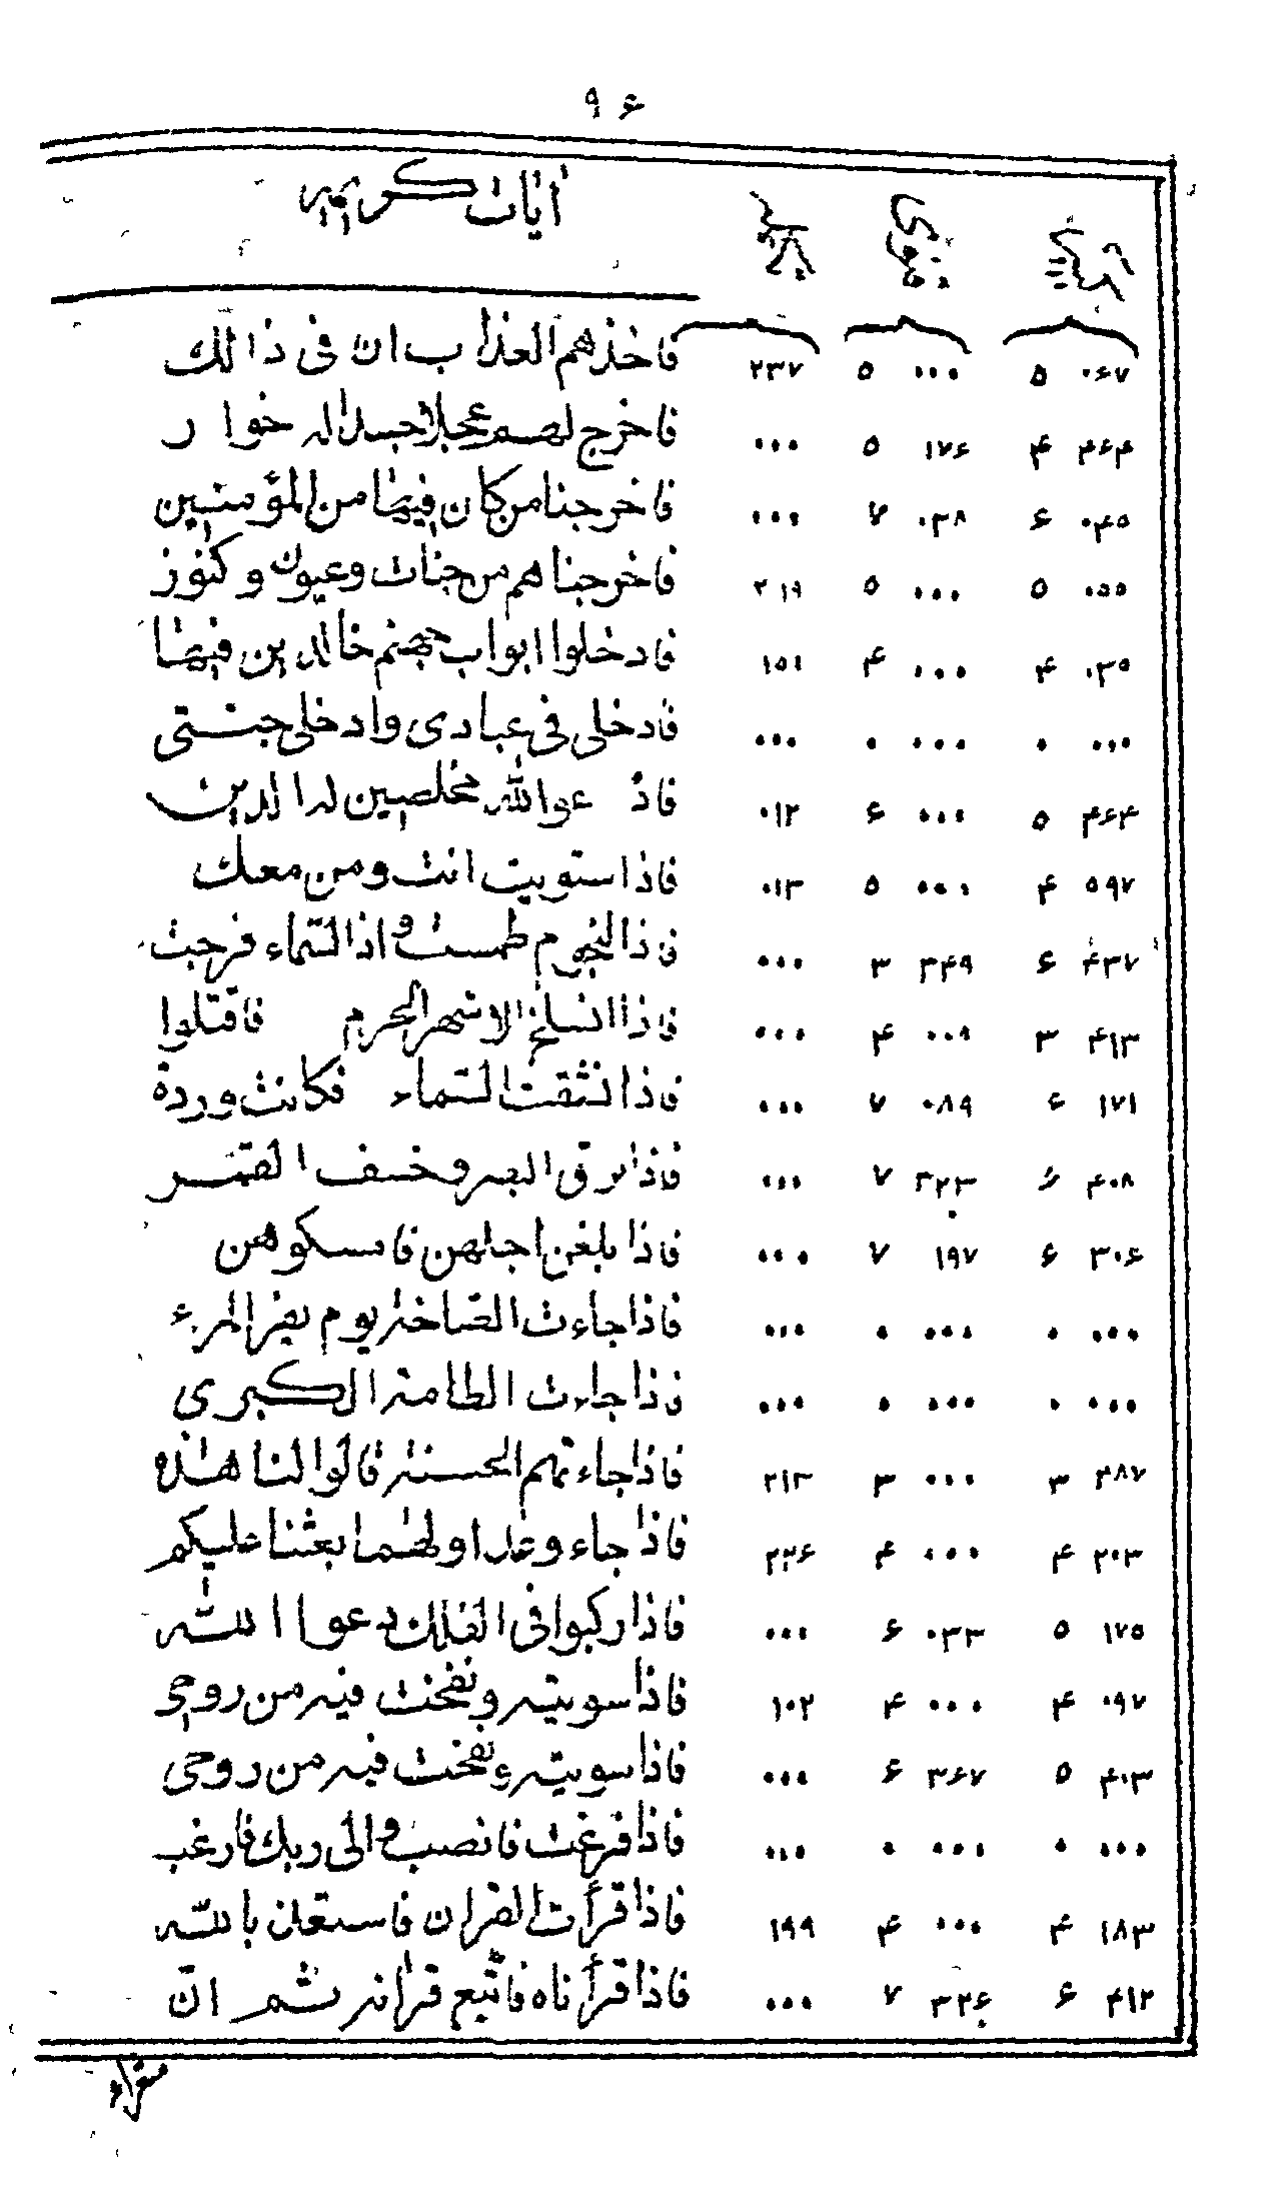 ۹۶
آیات کریمه
۰۶۷ ۵ ۰۰۰ ۵ ۲۳۷ فاخذهم العذاب ان فی ذالك
۴۶۴ ۴ ۱۷۶ ۵ ۰۰۰ فاخرج لهم عجلا جسدا له خوار
۰۴۵ ۶ ۰۳۸ ۷ ۰۰۰ فاخرجنا من كان فیها من المؤمنین
۰۵۵ ۵ ۰۰۰ ۵ ۲۱۹ فاخرجناهم من جنات وعیون وكنوز
۰۳۵ ۴ ۰۰۰ ۴ ۱۵۱ فادخلوا ابواب جهنم خالدین فیها
۰۰۰ ۰ ۰۰۰ ۰ ۰۰۰ فادخلی فی عبادی وادخلی جنتی
۴۶۴ ۵ ۰۰۰ ۶ ۰۱۲ فادعوا الله مخلصین له الدین
۵۹۷ ۴ ۰۰۰ ۵ ۰۱۳ فاذا استویت انت ومن معك
۴۳۷ ۶ ۳۴۹ ۳ ۰۰۰ فاذا النجوم طمست واذا السماء فرجت
۴۱۳ ۳ ۰۰۹ ۴ ۰۰۰ فاذا انسلخ الاشهر الحرم فاقتلوا
۱۷۱ ۶ ۰۸۹ ۷ ۰۰۰ فاذا انشقت السماء فكانت وردة
۴۰۸ ۶ ۳۲۳ ۷ ۰۰۰ فاذا برق البصر وخسف القمر
۳۰۶ ۶ ۱۹۷ ۷ ۰۰۰ فاذا بلغن اجلهن فامسكوهن
۰۰۰ ۰ ۰۰۰ ۰ ۰۰۰ فاذا جاءت الصاخة یوم یفر المرء
۰۰۰ ۰ ۰۰۰ ۰ ۰۰۰ فاذا جاءت الطامة الكبری
۴۸۷ ۳ ۰۰۰ ۳ ۲۱۳ فاذا جاءتهم الحسنة قالوا لنا هذه
۲۰۳ ۴ ۰۰۰ ۴ ۲۲۶ فاذا جاء وعد اولهما بعثنا علیكم
۱۷۵ ۵ ۰۳۳ ۶ ۰۰۰ فاذا ركبوا فی الفلك دعوا الله
۰۹۷ ۴ ۰۰۰ ۴ ۱۰۲ فاذا سویته ونفخت فیه من روحی
۴۰۳ ۵ ۳۶۷ ۶ ۰۰۰ فاذا سویته ونفخت فیه من روحی
۰۰۰ ۰ ۰۰۰ ۰ ۰۰۰ فاذا فرغت فانصب والی ربك فارغب
۱۸۳ ۴ ۰۰۰ ۴ ۱۹۹ فاذا قرأت القران فاستعذ بالله
۴۱۲ ۶ ۳۲۶ ۷ ۰۰۰ فاذا قرأناه فاتّبع قرانه ثم انّ